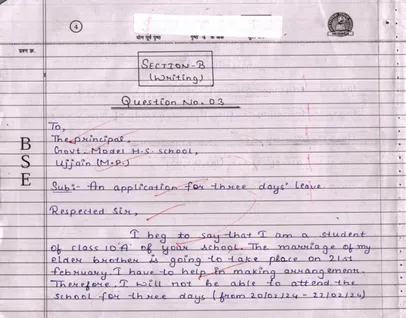 4
प्रश्न क्र.
योग पूर्व पृष्ठ
SECTION-B
(Writing)
Question No. 03
BSE
To,
The principal,
Govt. Model H.S. school,
Ujjain (M.P.)
Sub:- An application for three days' leave.
Respected Sir,
I beg to say that I am a student
of class 10'A' of your school. The marriage of my
elder brother is going to take place on 21st
february. I have to help in making arrangement.
Therefore, I will not be able to attend the
school for three days (from 20/02/24 - 22/02/24)